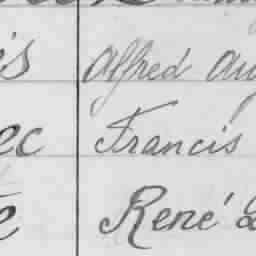 is Alfred Au
ec Francis
e René